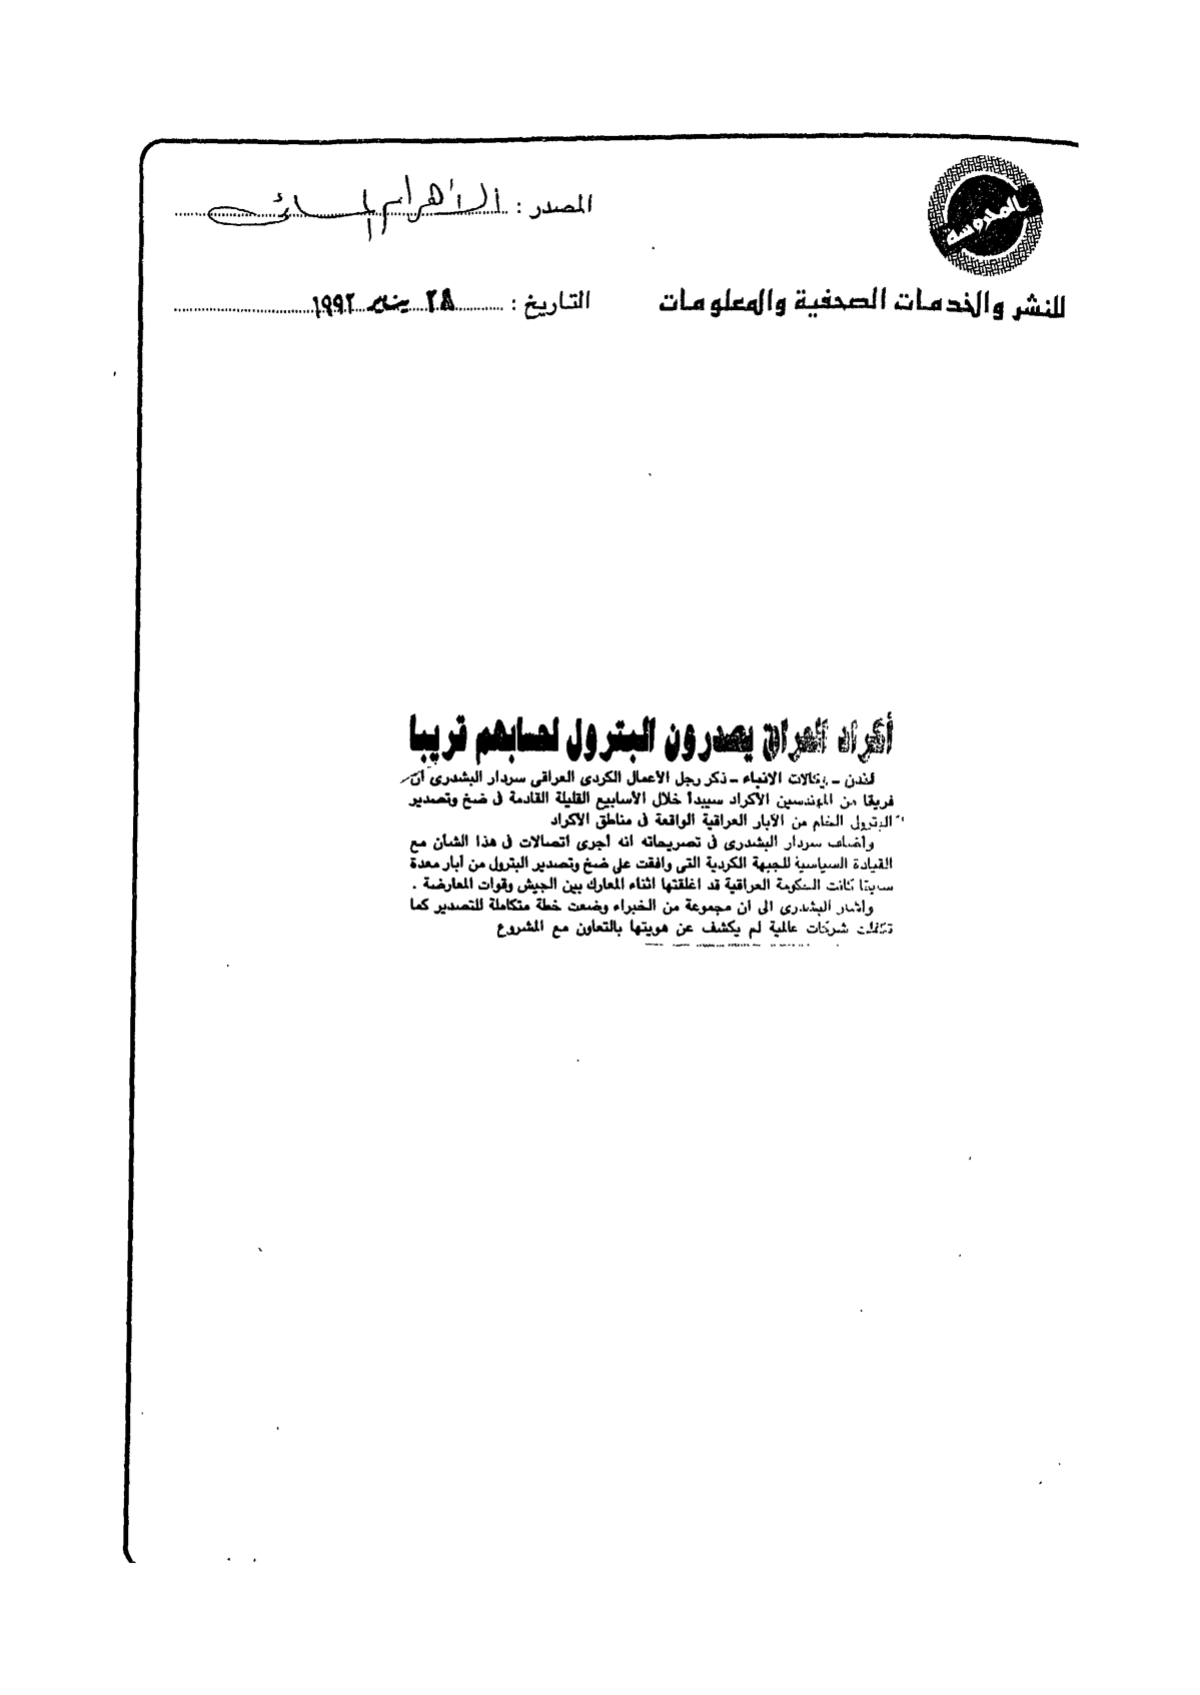 المحروسة
للنشر والخدمات الصحفية والمعلومات
المصدر : الأهرام المسائى
التاريخ : ٢٨ يناير ١٩٩٢
أكراد العراق يصدرون البترول لحسابهم قريبا
لندن - وكالات الانباء - ذكر رجل الأعمال الكردى العراقى سردار البشدرى ان
فريقا من المهندسين الأكراد سيبدأ خلال الأسابيع القليلة القادمة فى ضخ وتصدير
البترول الخام من الآبار العراقية الواقعة فى مناطق الأكراد
وأضاف سردار البشدرى فى تصريحاته انه أجرى اتصالات فى هذا الشأن مع
القيادة السياسية للجبهة الكردية التى وافقت على ضخ وتصدير البترول من آبار معدة
سابقا كانت الحكومة العراقية قد اغلقتها اثناء المعارك بين الجيش وقوات المعارضة .
وأشار البشدرى الى ان مجموعة من الخبراء وضعت خطة متكاملة للتصدير كما
تكفلت شركات عالمية لم يكشف عن هويتها بالتعاون مع المشروع